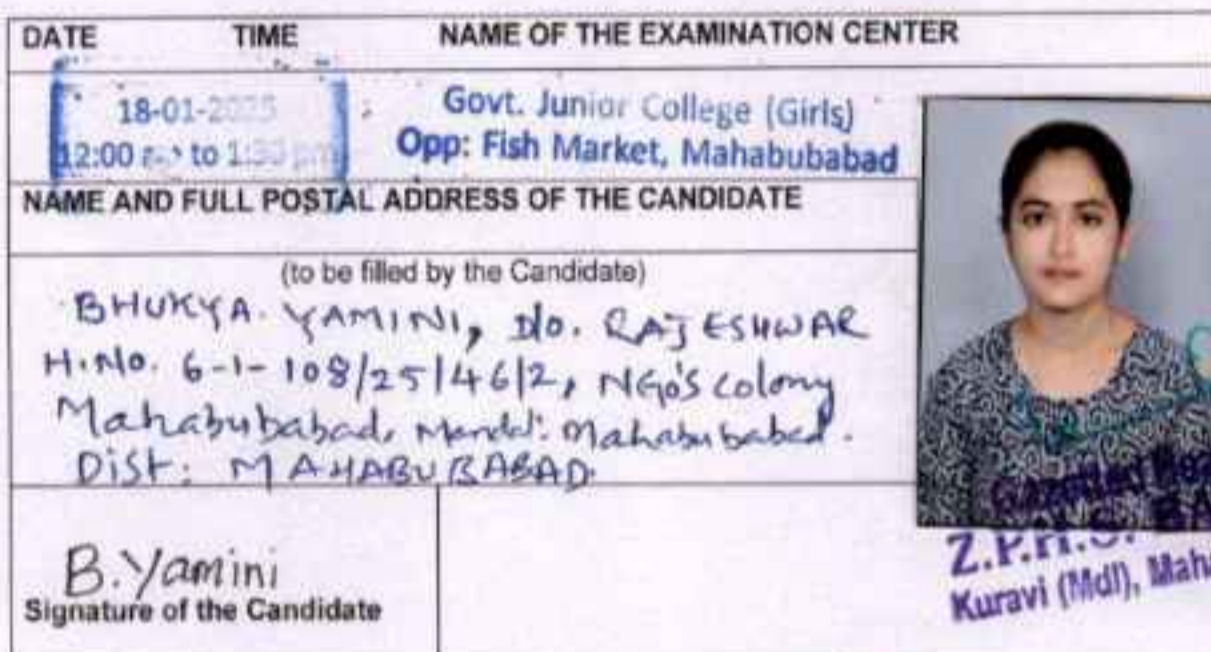 DATE TIME NAME OF THE EXAMINATION CENTER
18-01-2025 Govt. Junior College (Girls)
12:00 to 1:30 pm Opp: Fish Market, Mahabubabad
NAME AND FULL POSTAL ADDRESS OF THE CANDIDATE
(to be filled by the Candidate)
BHUKYA. YAMINI, D/o. RAJESHWAR
H.No. 6-1-108/25/46/2, NGO'S colony
Mahabubabad, Mandal: Mahabubabad.
Dist: MAHABUBABAD
B.Yamini
Signature of the Candidate
Z.P.H.S.
Kuravi (Mdl), Maha